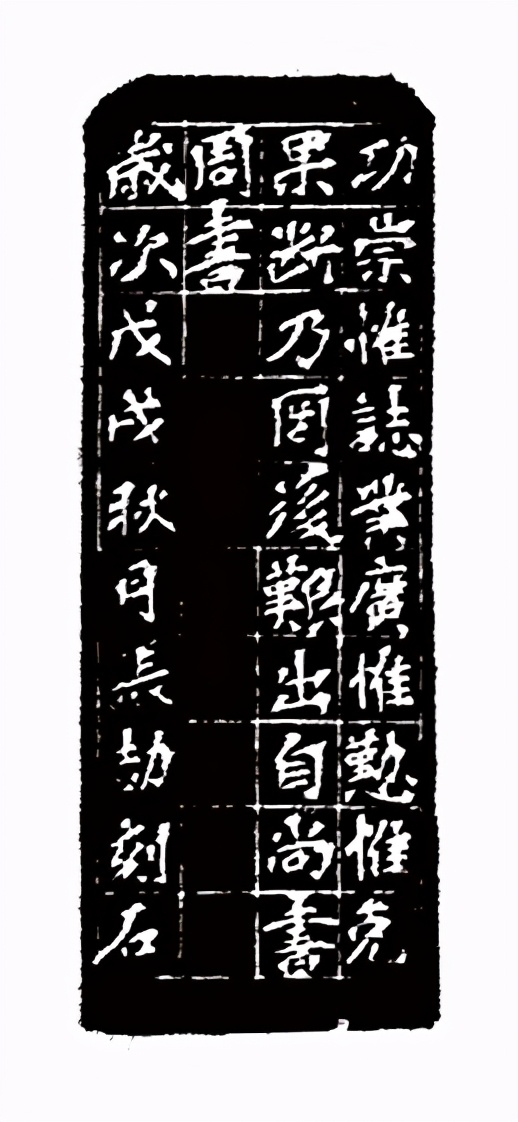 功崇惟誌業廣惟勤惟克
果斷乃罔後艱出自尚書
周書
歲次戊戌秋月長劫刻石